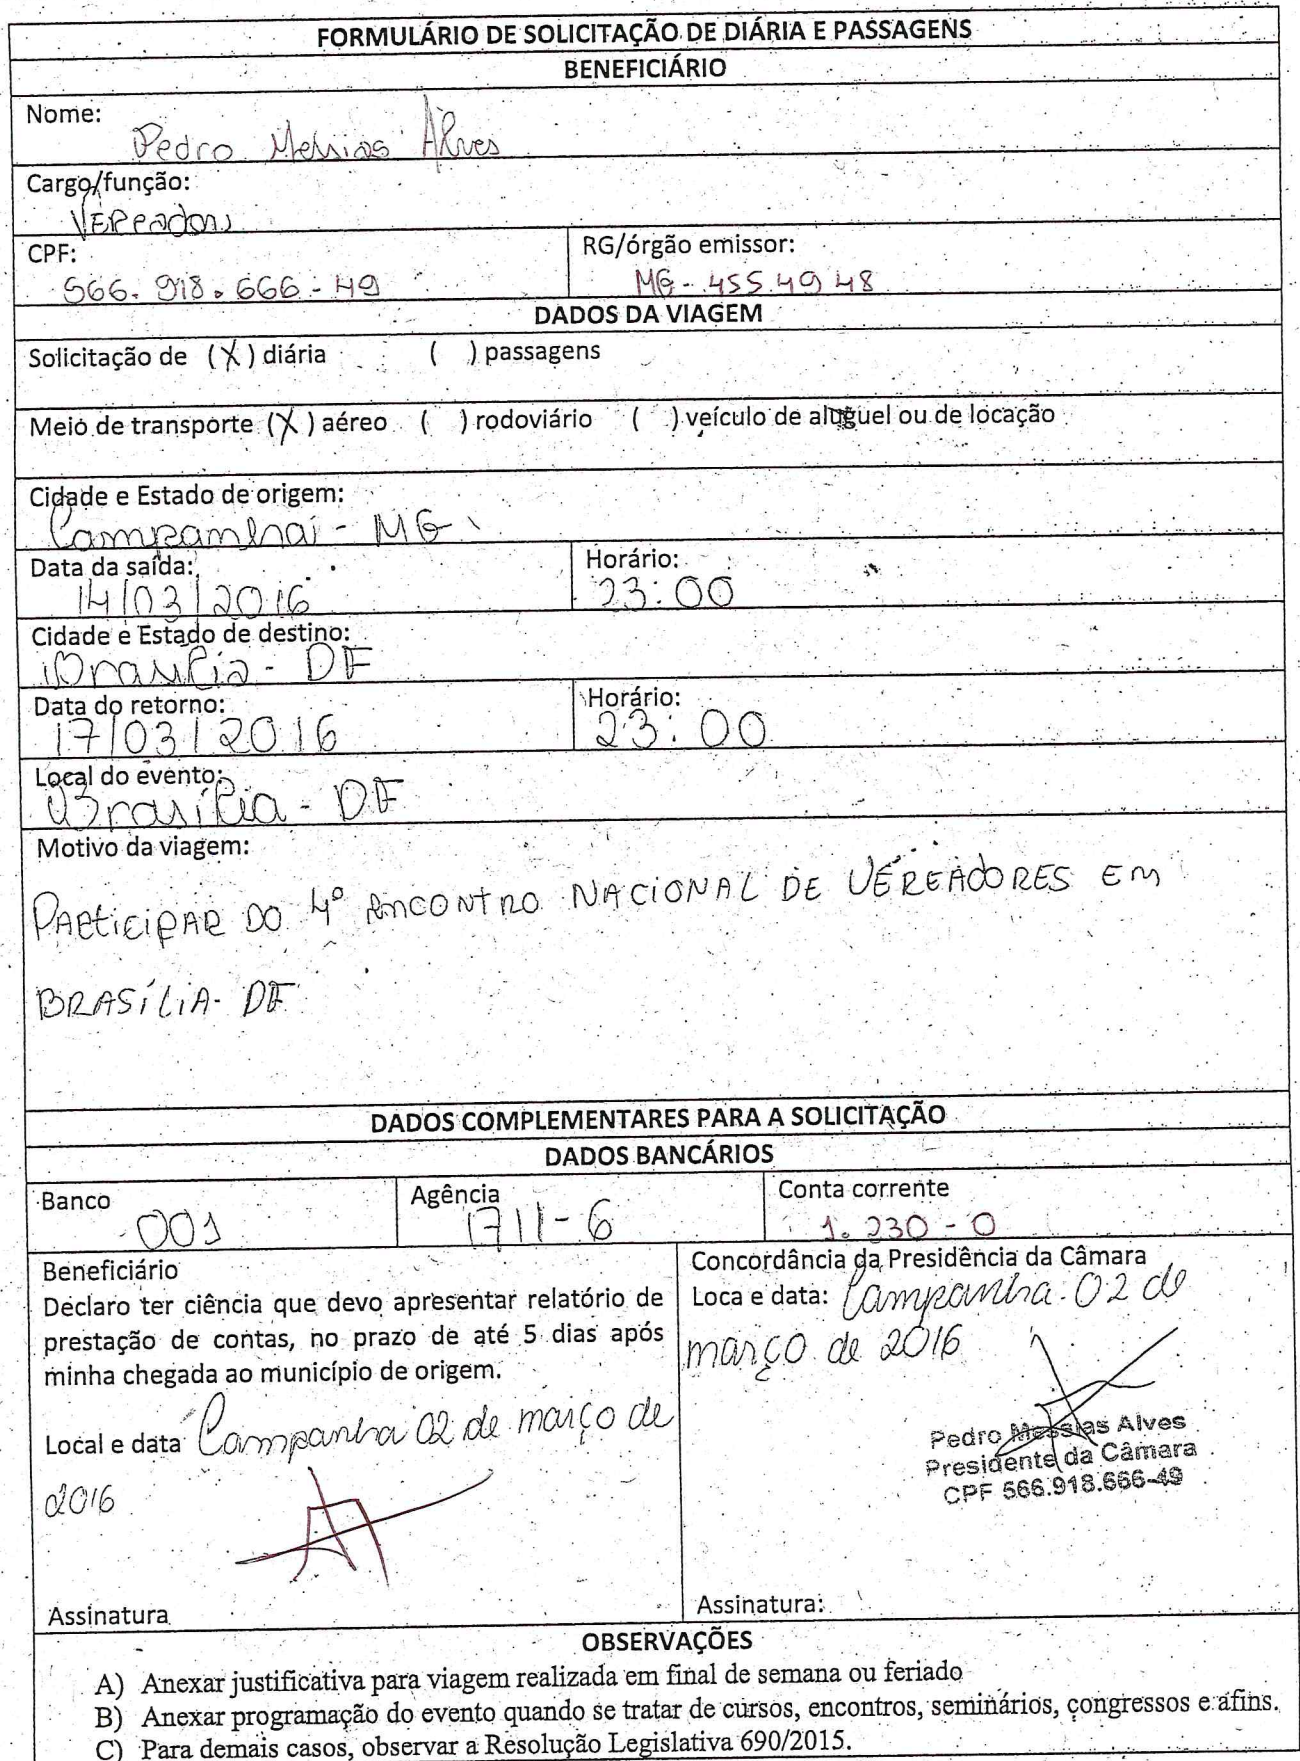 FORMULÁRIO DE SOLICITAÇÃO DE DIÁRIA E PASSAGENS
BENEFICIÁRIO
Nome:
Pedro Messias Alves
Cargo/função:
VEREADOR
CPF:
RG/órgão emissor:
566.918.666-49
MG-4554948
DADOS DA VIAGEM
Solicitação de (X) diária ( ) passagens
Meio de transporte (X) aéreo ( ) rodoviário ( ) veículo de aluguel ou de locação
Cidade e Estado de origem:
Campanha - MG
Data da saída:
Horário:
14/03/2016
23:00
Cidade e Estado de destino:
Brasília - DF
Data do retorno:
Horário:
17/03/2016
23:00
Local do evento:
Brasília - DF
Motivo da viagem:
PARTICIPAR DO 4º ENCONTRO NACIONAL DE VEREADORES EM
BRASÍLIA - DF
DADOS COMPLEMENTARES PARA A SOLICITAÇÃO
DADOS BANCÁRIOS
Banco
Agência
Conta corrente
001
1711-6
1.230-0
Beneficiário
Declaro ter ciência que devo apresentar relatório de
prestação de contas, no prazo de até 5 dias após
minha chegada ao município de origem.
Local e data Campanha 02 de março de
2016
Assinatura
Concordância da Presidência da Câmara
Loca e data: Campanha 02 de
março de 2016
Pedro Messias Alves
Presidente da Câmara
CPF 566.918.666-49
Assinatura:
OBSERVAÇÕES
A) Anexar justificativa para viagem realizada em final de semana ou feriado
B) Anexar programação do evento quando se tratar de cursos, encontros, seminários, congressos e afins.
C) Para demais casos, observar a Resolução Legislativa 690/2015.